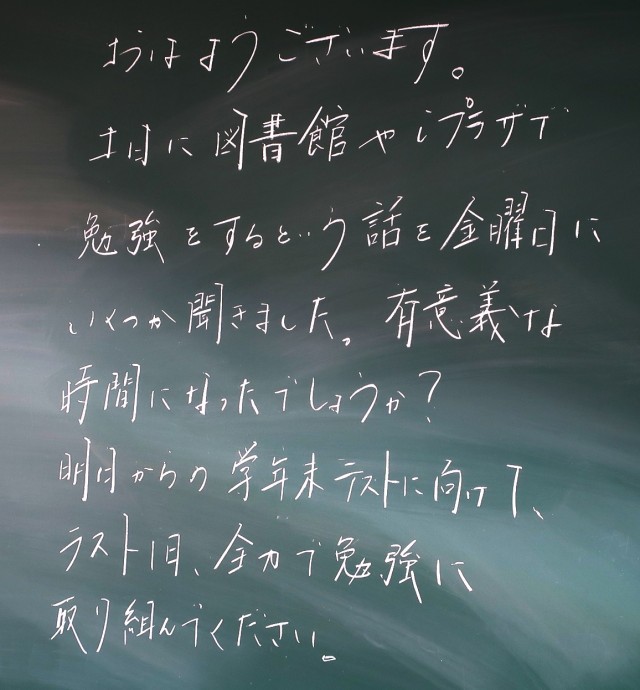 おはようございます。
土日に図書館やiプラザで
勉強をするという話を金曜日に
いくつか聞きました。有意義な
時間になったでしょうか?
明日からの学年末テストに向けて、
テスト1日、全力で勉強に
取り組んでください。